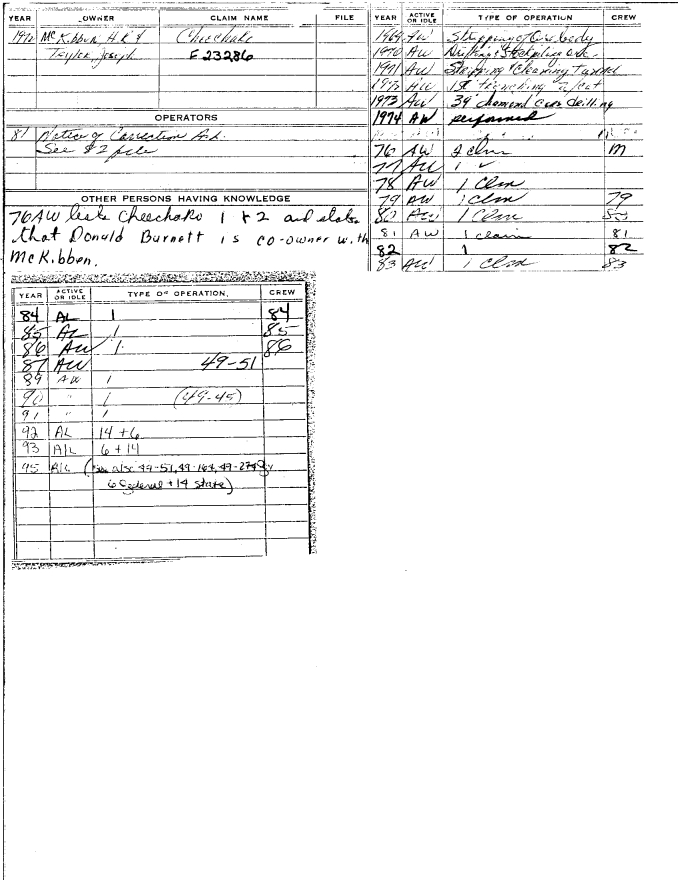 YEAR OWNER CLAIM NAME FILE
1972 McKibben, H.R. & Cheechako
Taylor, Joseph F 23286
OPERATORS
81 Notice of Correction
See #2 file
OTHER PERSONS HAVING KNOWLEDGE
76 AW lists Cheechako 1 & 2 and states
that Donald Burnett is co-owner with
McKibben.
YEAR ACTIVE OR IDLE TYPE OF OPERATION CREW
1969 AW Stripping of Ore body
1970 AW Drifting & Stockpiling ore
1971 AW Stripping & Cleaning tunnel
1972 AW trenching
1973 AW 39' diamond core drilling
1974 AW performed
76 AW 2 clm M
77 AW 1 ✓
78 AW 1 Clm
79 AW 1 Clm 79
80 AW 1 Clm 80
81 AW 1 claim 81
82 1 82
83 AW 1 Clm 83
YEAR ACTIVE OR IDLE TYPE OF OPERATION, CREW
84 AL 1 84
85 AL 1 85
86 AW 1 86
87 AW 49-51
89 AW 1
90 " 1 (49-45)
91 " 1
92 AL 14 + 6
93 A/L 6 + 14
95 A/L (see also 49-51, 49-164,
6 Federal + 14 state)